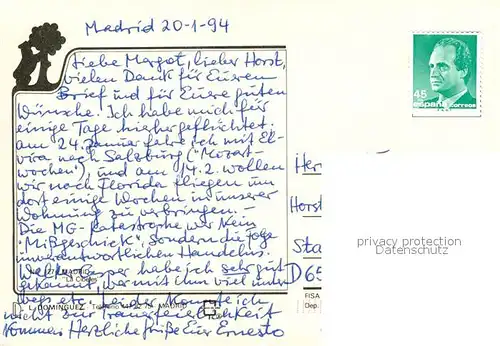 Madrid 20-1-94
Liebe Margot, lieber Horst,
vielen Dank für Eueren
Brief und für Euere guten
Wünsche. Ich habe mich für
einige Tage hierher geflüchtet.
am 24. Januar fahre ich mit El-
vira nach Salzburg ("Mozart-
wochen") und am 14.2. wollen
wir nach Florida fliegen um
dort einige Wochen in unserer
Wohnung zu verbringen. –
Die MG-Katastrophe war kein
"Mißgeschick", sondern die Folge
unverantwortlichen Handelns.
habe ich sehr gut
gekannt, war mit ihm viel unter
wegs etc. Leider konnte ich
nicht zur Trauerfeierlichkeit
kommen. Herzliche Grüße Euer Ernesto
45
españa correos
Her
Horst
Sta
D 65
privacy protection
Datenschutz
MADRID
L. DOMINGUEZ
MADRID
FISA
Dep.